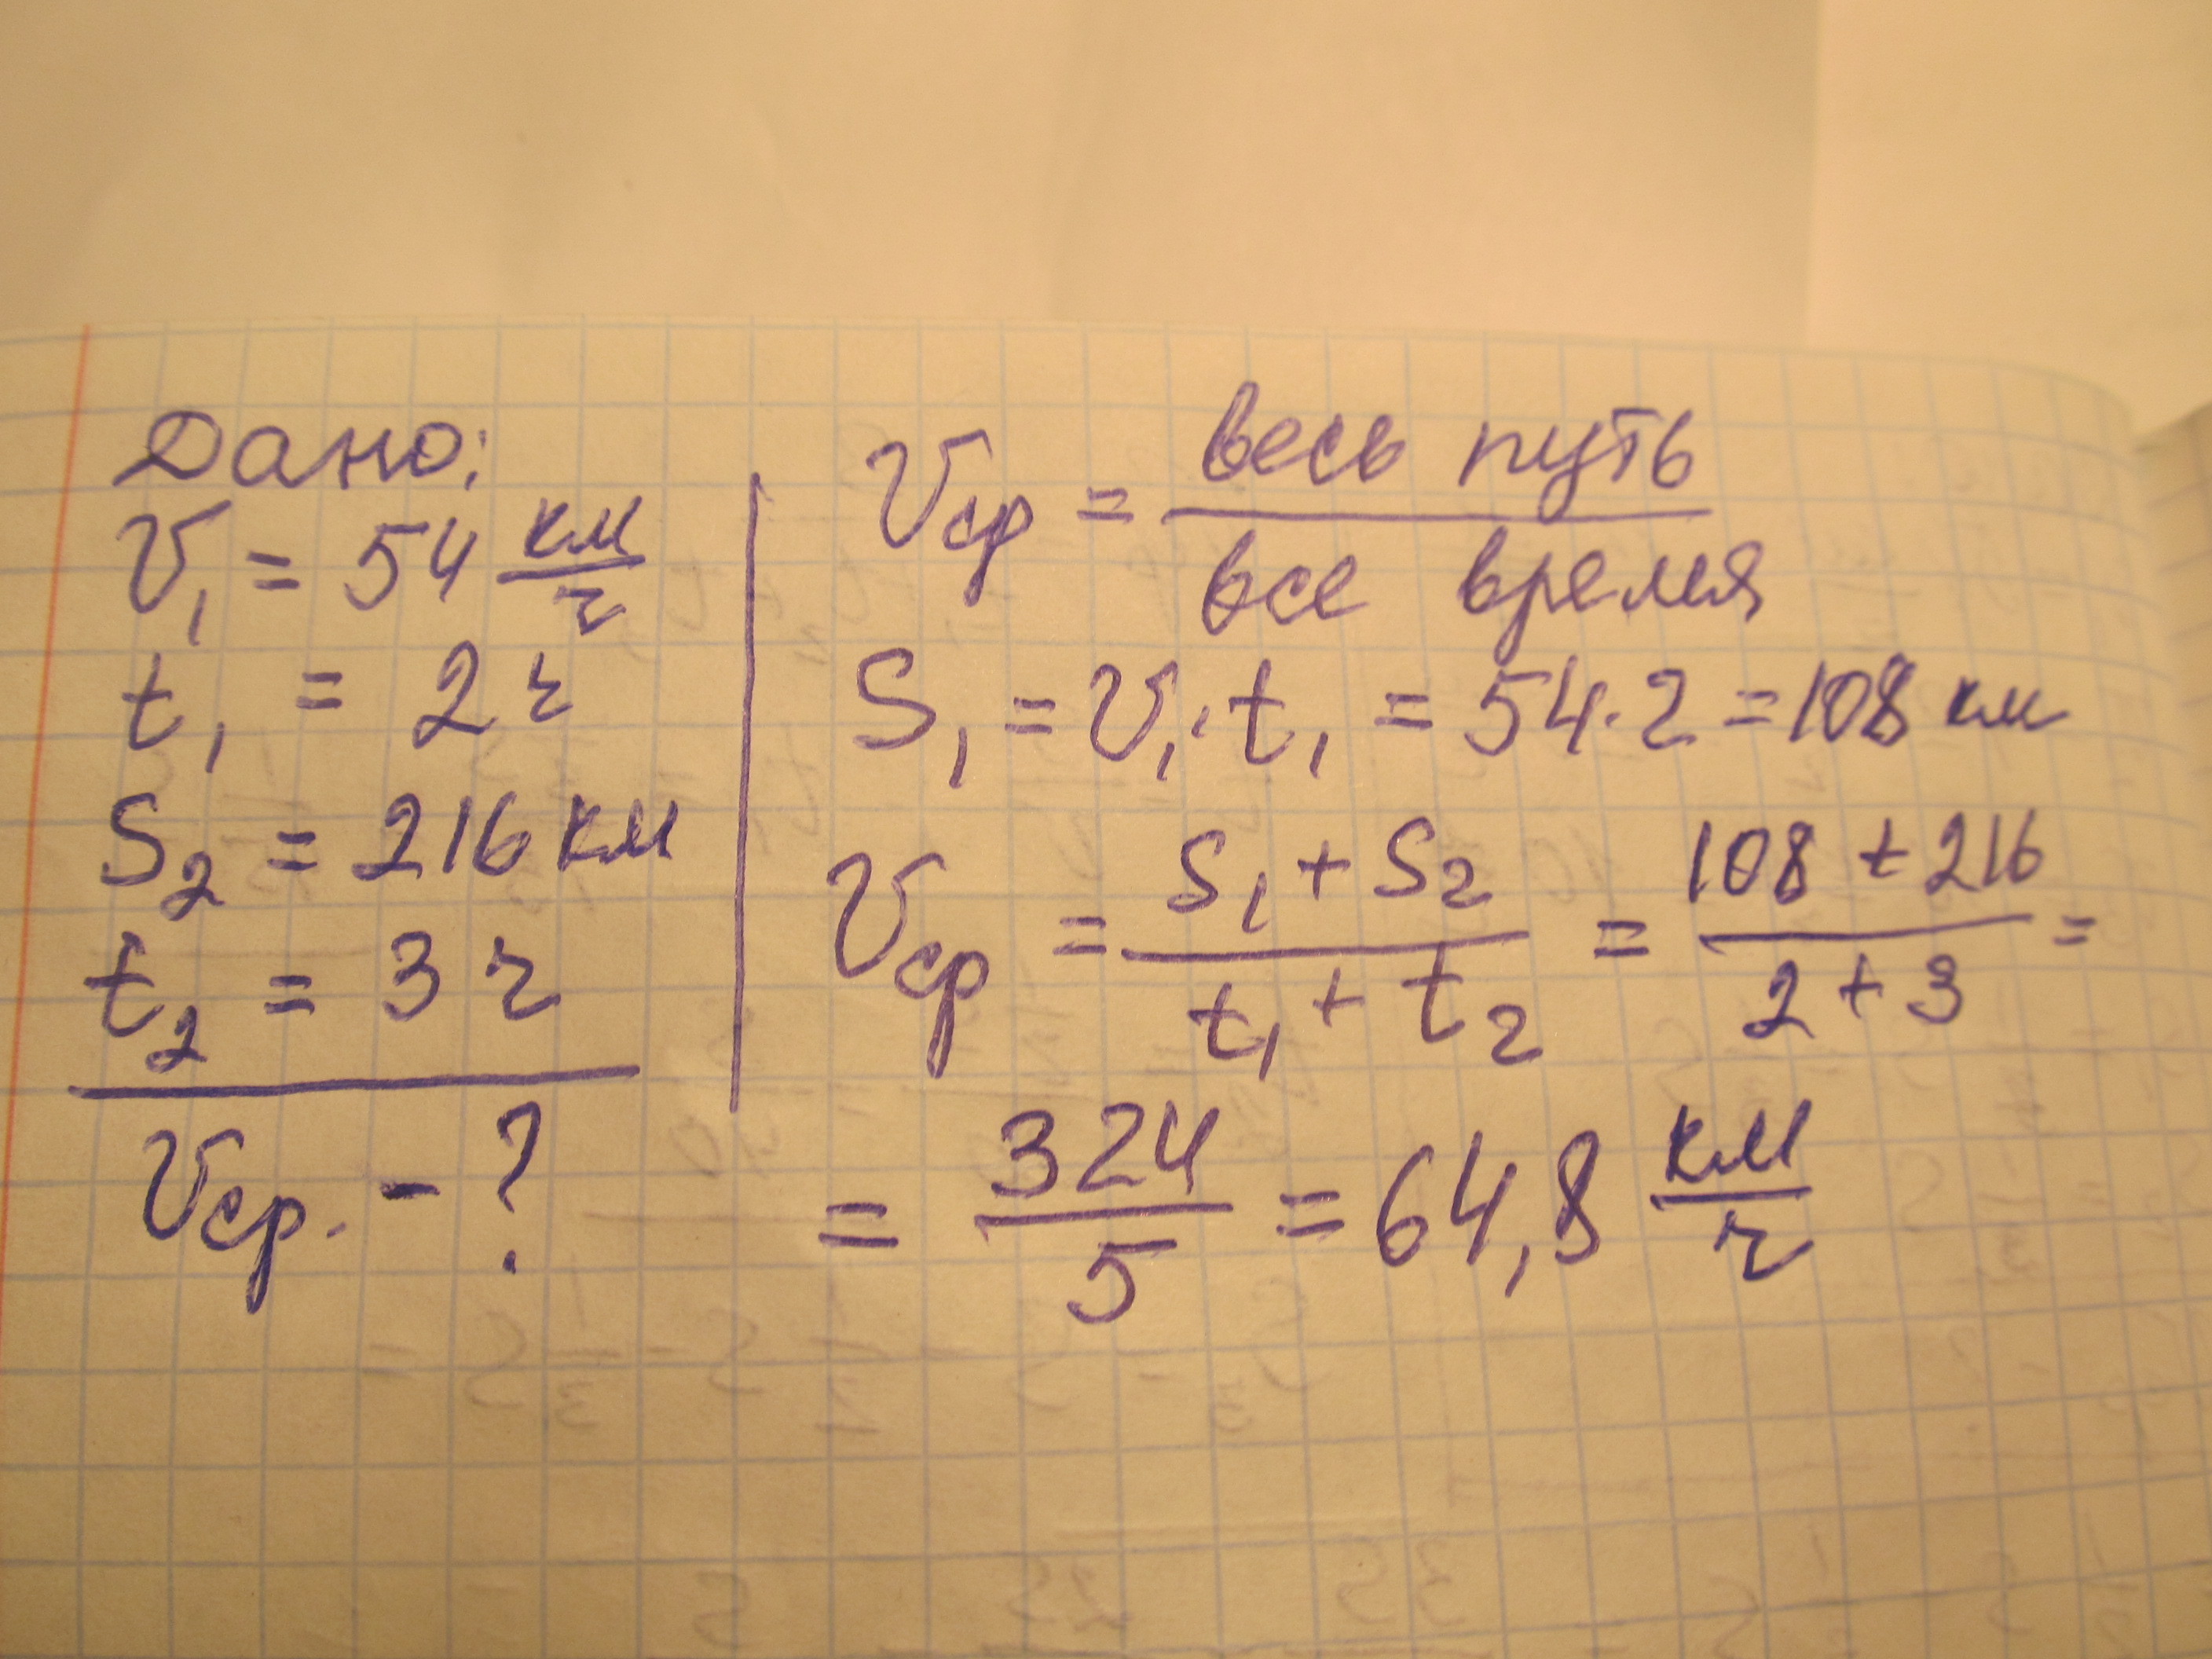 Дано:
V₁ = 54 км/ч
t₁ = 2 ч
S₂ = 216 км
t₂ = 3 ч
Vср. - ?
Vср = весь путь / все время
S₁ = V₁·t₁ = 54·2 = 108 км
Vср = (S₁ + S₂) / (t₁ + t₂) = (108 + 216) / (2 + 3) =
= 324 / 5 = 64,8 км/ч